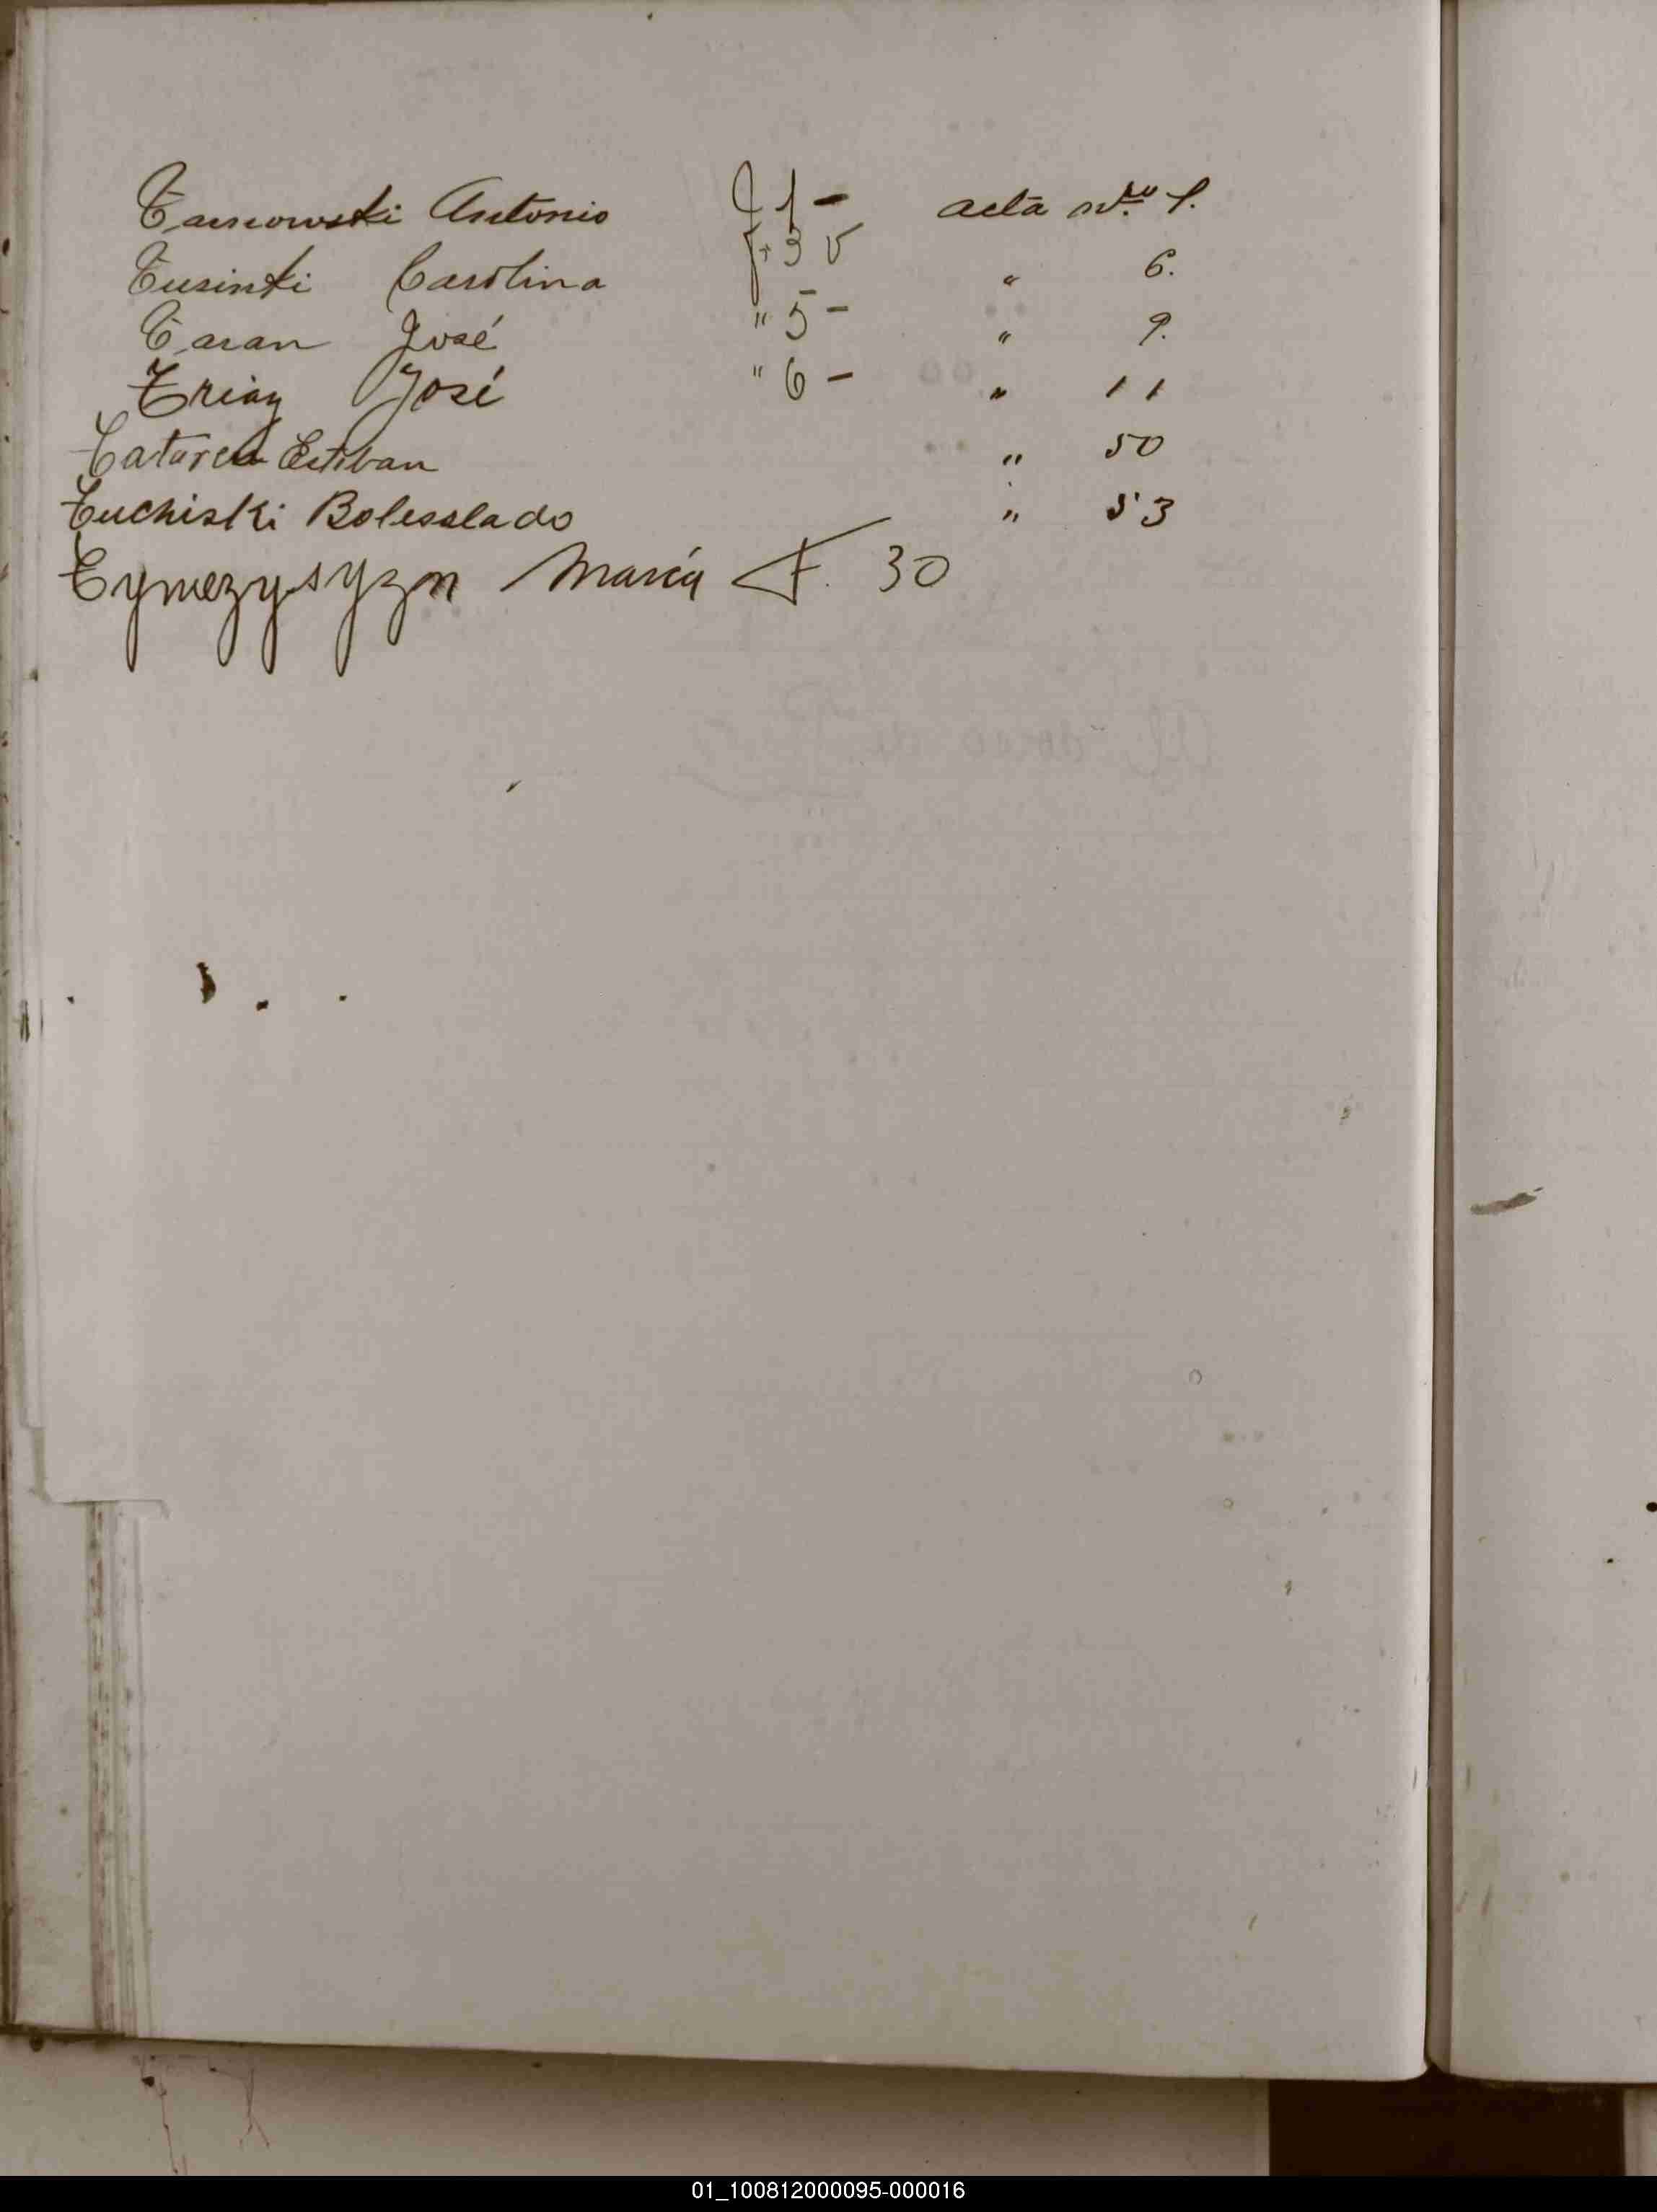 Tarnowski Antonio F 1 - acta Nro 1.
Tusinski Carolina F. 3 v " 6.
Taran José " 5 - " 9.
Triay José " 6 - " 11
Esteban " 50
Tuchiski Boleslado " 53
María F. 30
01_100812000095-000016